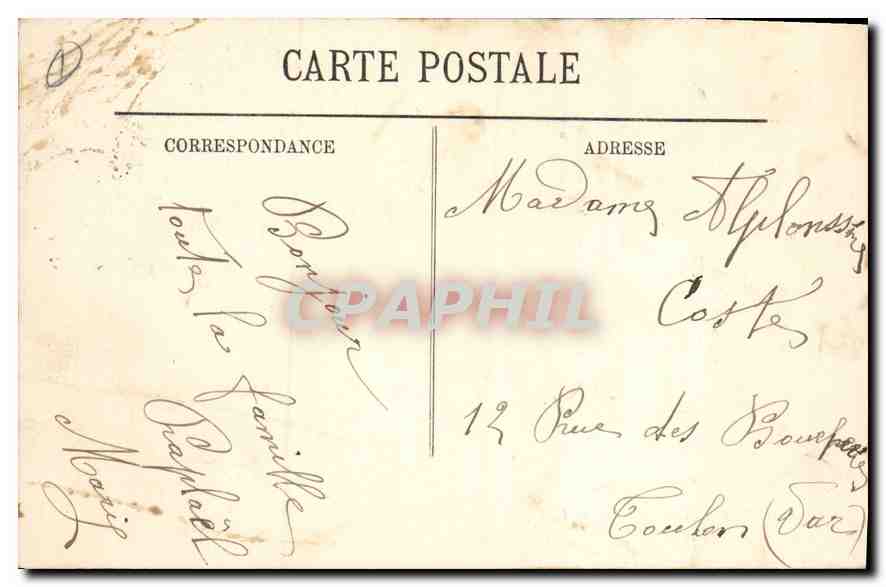 1
CARTE POSTALE
CORRESPONDANCE
Bonjour
toute la famille
Raphaël
Marie
ADRESSE
Madame Alphonsine
Coste
12 Rue des
Toulon (Var)
CPAPHIL